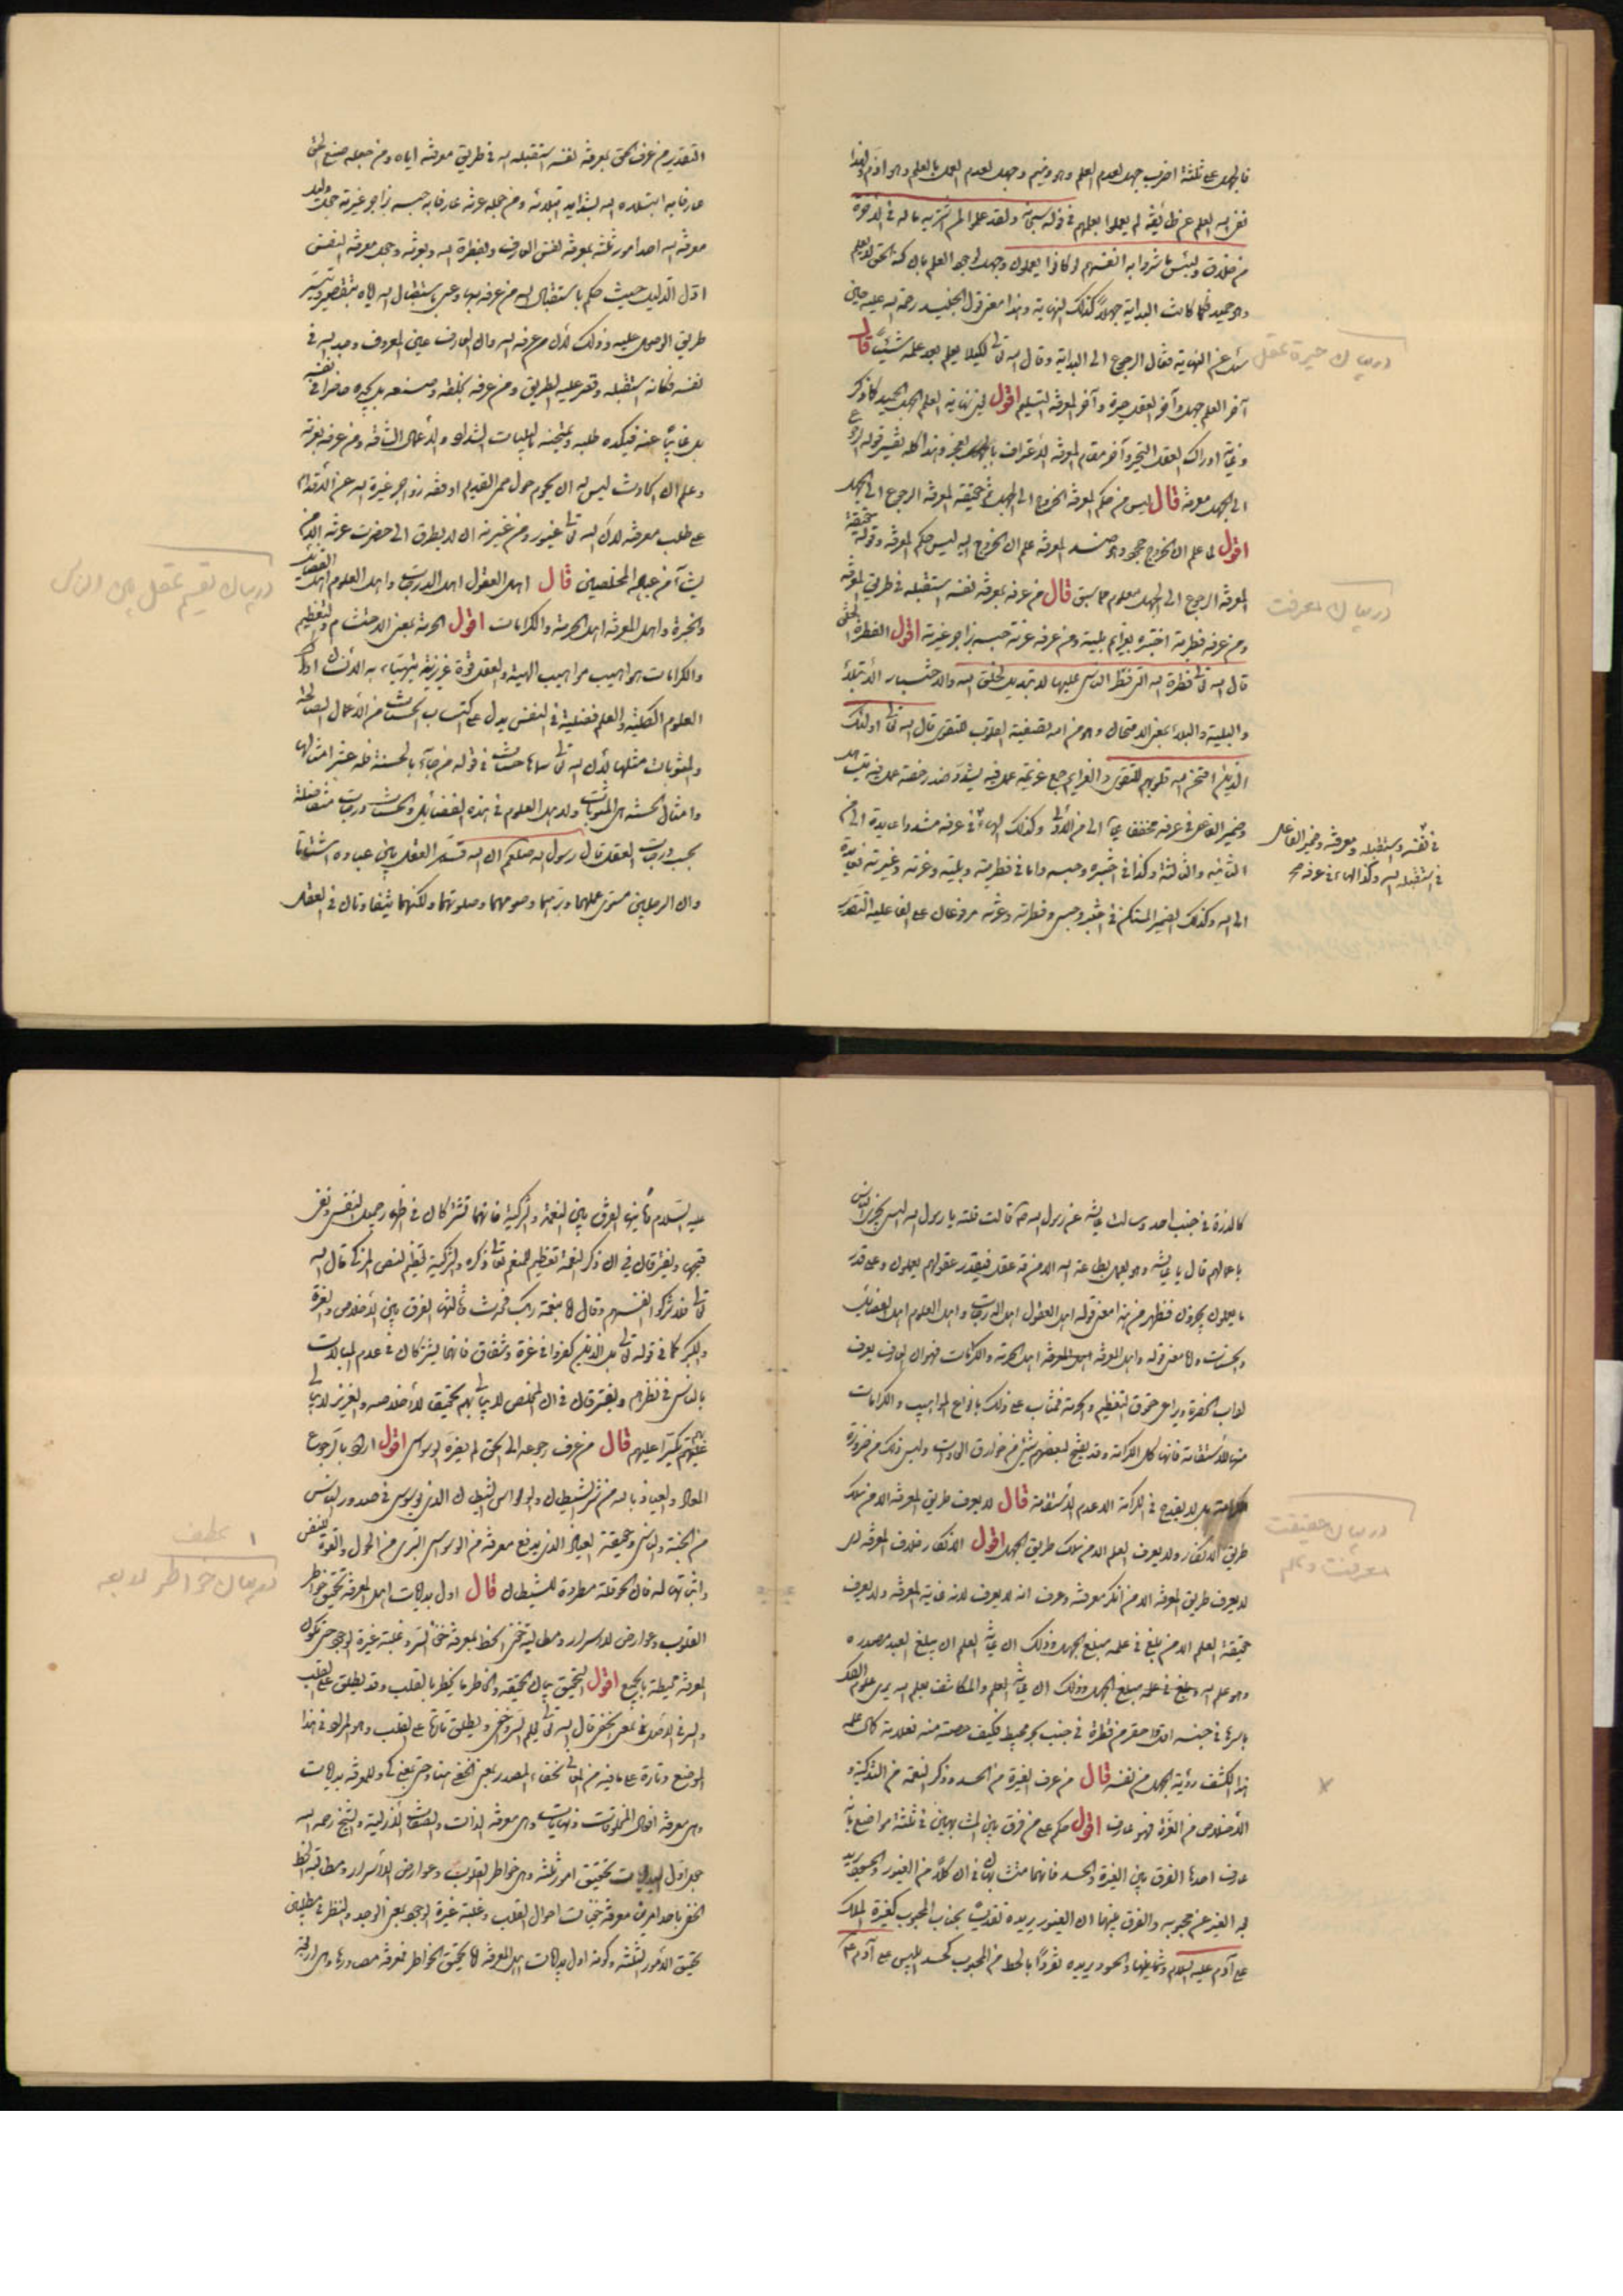 فالجهل على ثلثة اضرب جهل لعدم العلم وهو ذميم وجهل لعدم العمل بالعلم وهو اذم ولهذا
نفى الله العلم عن طائفة لم يعملوا بعلمهم في قوله سبحانه ولقد علموا لمن اشتريه ماله في الآخرة
من خلاق ولبئس ما شروا به انفسهم لو كانوا يعلمون وجهل
وهو حميد فكما كانت البداية جهلاً كذلك النهاية وهذا معنى قول الجنيد رحمة الله عليه حين
سئل عن النهاية فقال الرجوع الى البداية وقال الله تعالى لكيلا يعلم بعد علم شيئاً قال
دربيان حيرة عقل
آخر العلم جهل وآخر العقل حيرة وآخر المعرفة التسليم اقول لان نهاية العلم الجهل الحميد كما ذكر
وغاية ادراك العقل التحير وآخر مقام المعرفة الاعتراف بالعجز وهذا كله تفسير قوله
الى الجهل معرفة قال ليس من حكم المعرفة الخروج الى الجهل ثم حقيقة المعرفة الرجوع الى الجهل
اقول لما علم ان الخروج جحود وهو ضد المعرفة علم ان الخروج اليه ليس حكم المعرفة وقوله حقيقة
المعرفة الرجوع الى الجهل معلوم مما سبق قال من عرفه بمعرفة نفسه استقبله في طريق المعرفة
دربيان معرفت
ومن عرفه بفطرته اختبره بلية ومن عرفه عزته حبسه بزاجر غيرته اقول الفطرة الخلق
قال الله تعالى فطرة الله التي فطر الناس عليها لا تبديل لخلق الله والاختبار الابتلاء
والبلية والبلاء بمعنى الامتحان وهو من الله تصفية القلوب للتقوى قال الله تعالى اولئك
الذين امتحن الله قلوبهم للتقوى والعزايم جمع عزيمة
وضمير الفاعل في عرفه مخففا الى من الاولى وكذلك الهاء في عرفه مشددا عايدة الى من
في نفسه واستقبله ومعرفته وضمير الفاعل
في استقبله الله وكذا الهاء في عرفه صح
الثانية والثالثة وكذا في اختبره وحبسه واما في فطرته وبليته وعزته وغيرته فعايدة
الى الله وكذلك الضمير المستكن في اختبر وحبس وفطرته وعزته مرفوعان على الفاعلية التقدير
التقدير من عرف الحق بمعرفة نفسه استقبله الله في طريق معرفته اياه ومن جعله صنع الحق
عارفا به ابتلاه الله بشدايد ابتلائه ومن جعله عزته عارفا به حبسه بزاجر غيرته
معرفة الله احد امور ثلثة بمعرفة نفس العارف وبفطرة الله وبعزته وجعل معرفة النفس
اول الدليل حيث حكم باستقبال الله من عرفه بها وعبر باستقبال الله اياه
طريق الوصول عليه وذلك لان من عرف الله وان العارف عين المعروف وجد الله في
نفسه فكانه استقبله وقصر عليه الطريق ومن عرفه بخلقه وصنعه لم يجده حاضرا في نفسه
بل غايبا عنه فيكده طلبه ويمتحنه بالبليات الشداد والاعمال الشاقة ومن عرفه بعزته
وعلم ان الحادث ليس له ان يحوم حول حمى القديم اوقفه زواجر غيرة الله عن الاقدام
على طلب معرفته لان الله تعالى غيور ومن غيرته ان لا يطرق الى حضرت عزته الا من
يشاء من عباده المخلصين قال اهل العقول اهل الدرجات واهل العلوم اهل الفضايل
دربيان تقسيم عقل بين الناس
والخبرة واهل المعرفة اهل الحرمة والكرامات اقول الحرمة بمعنى الاحتشام والتعظيم
والكرامات هو اهيب مواهيب الهية والعقل قوة غريزية يتهيأ به الانسان ادراك
العلوم الكلية والعلم فضيلة في النفس يدل على اكتساب الحسنات من الاعمال الصالحة
والمثوبات مثلها لان الله تعالى سماها حسنات في قوله من جاء بالحسنة فله عشر امثالها
وامثال الحسنة هي المثوبات ولاهل العلوم في هذه الفضائل والحسنات درجات متفاضلة
بحسب درجات العقل قال رسول الله صلعم ان الله قسم العقل بين عباده اشتاتا
وان الرجلين مستوى علمهما وبرهما وصومهما وصلوتهما ولكنهما يتفاوتان في العقل
كالذرة في جنب احد وسالت عايشة عن رسول الله قالت قلت يا رسول الله اليس يجزى الناس
باعمالهم قال يا عايشة وهل يعمل بطاعة الله الا من قد عقل فبقدر عقولهم يعملون وعلى قدر
ما يعملون يجزون فظهر من هذا معنى قوله اهل العقول اهل الدرجات واهل العلوم اهل الفضايل
والحسنات واما معنى قوله واهل المعرفة اهل الحرمة والكرامات فهو ان العارف يعرف
اداب الحضرة ويراعي حقوق التعظيم والحرمة فيثاب على ذلك بانواع المواهيب والكرامات
منها الاستقامة فانها كل الكرامة وقد يفتح لبعضهم شيئ من خوارق العادات وليس ذلك من ضرورة
الكرامة بل لا يقدح في الكرامة الا عدم الاستقامة قال لا يعرف طريق المعرفة الا من سلك
دربيان حقيقت
معرفت وعلم
طريق الانكار ولا يعرف العلم الا من سلك طريق الجهل اقول الانكار خلاف المعرفة
لا يعرف طريق المعرفة الا من انكر معرفته وعرف انه لا يعرف لانه غاية المعرفة ولا يعرف
حقيقة العلم الا من بلغ في علمه مبلغ الجهل وذلك ان غاية العلم ان يبلغ العبد مصدره
وهو علم الله ويبلغ في علمه مبلغ الجهل وذلك ان غاية العلم والمكاشف بعلم الله يرى علوم الكل
باسرها في جنبه اقل واحقر من قطرة في جنب بحر محيط فكيف حصته منه فعلامة كمال علم
هذا الكشف رؤية الجهل من نفسه قال من عرف الغيرة من الحسد وذكر النعمة من التزكية و
الاخلاص من الغرة فهو عارف اقول حكم على من فرق بين المتشابهين في ثلثة مواضع بانه
عارف احدها الفرق بين الغيرة والحسد فانهما متشابهان في ان كلا من الغيور والحسود يريد
الغير عن محبوبه والفرق بينهما ان الغيور يريده تقديسا لجناب المحبوب كغيرة الملك
على آدم عليه السلام والحسود يريده تفردا بالحظ من المحبوب كحسد ابليس على آدم
عليه السلام ثانيها الفرق بين النعمة والتزكية فانهما تشتركان في اظهار جميل النفس ونفى
قبيحها ويفترقان في ان ذكر النعمة تعظيم للمنعم تعالى ذكره والتزكية تعظيم لنفس المزكي قال الله
تعالى فلا تزكوا انفسكم وقال واما بنعمة ربك فحدث ثالثها الفرق بين الاخلاص والغرة
والكبر كما في قوله تعالى بل الذين كفروا في عزة وشقاق فانهما يشتركان في عدم المبالات
بالناس في نظرهم ويفترقان في ان المخلص لا يبالي بهم تحقيقا لاخلاصه والعزيز لا يبالي
بهم تكبرا عليهم قال من عرف رجوعه الى الحق لم يضره الوسواس اقول اراد بالرجوع
المعاد والعياذ بالله من شر الشيطان والوسواس الشيطان الذي يوسوس في صدور الناس
من الجنة والناس وحقيقة العياذ الذي يدفع معرفة من الوسواس التبري من الحول والقوة للنفس
واثباتها لله فان الحوقلة مطردة للشيطان قال اول بدايات اهل المعرفة تحقيق خواطر
دربيان خواطر
القلوب وعوارض الاسرار ومطالبة خفي الحظ بمعرفة خفي السر وغلبة غيرة الوجود حتى تكون
المعرفة محيطة بالجميع اقول التحقيق بيان الحقيقة والخاطر ما يخطر بالقلب وقد يطلق على القلب
والسر في الاصل بمعنى الخفي قال الله تعالى يعلم السر واخفى ويطلق تارة على القلب وهو المراد في هذا
الموضع وتارة على ما فيه من المعاني الخفاء المصدر بمعنى الخفي هنا وحتى بمعنى كي وللمعرفة بدايات
وهي معرفة افعال المخلوقات ونهايات وهي معرفة الذات والصفات الازلية والشيخ رحمه الله
جعل اول البدايات تحقيق امور ثلثة وهي خواطر القلوب وعوارض الاسرار ومطالبة الحظ
الخفي باحد امرين معرفة خفيات احوال القلب وغلبة غيرة الوجود بمعنى الوجد والنظر في مطلبين
تحقيق الامور الثلثة وكونه اول بدايات اهل المعرفة اما تحقيق الخواطر فمعرفة مصادرها وهي اربعة